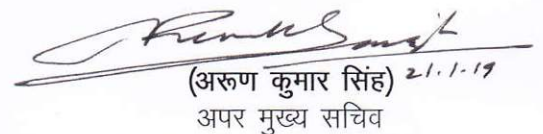 (अरूण कुमार सिंह) 21.1.19
अपर मुख्य सचिव